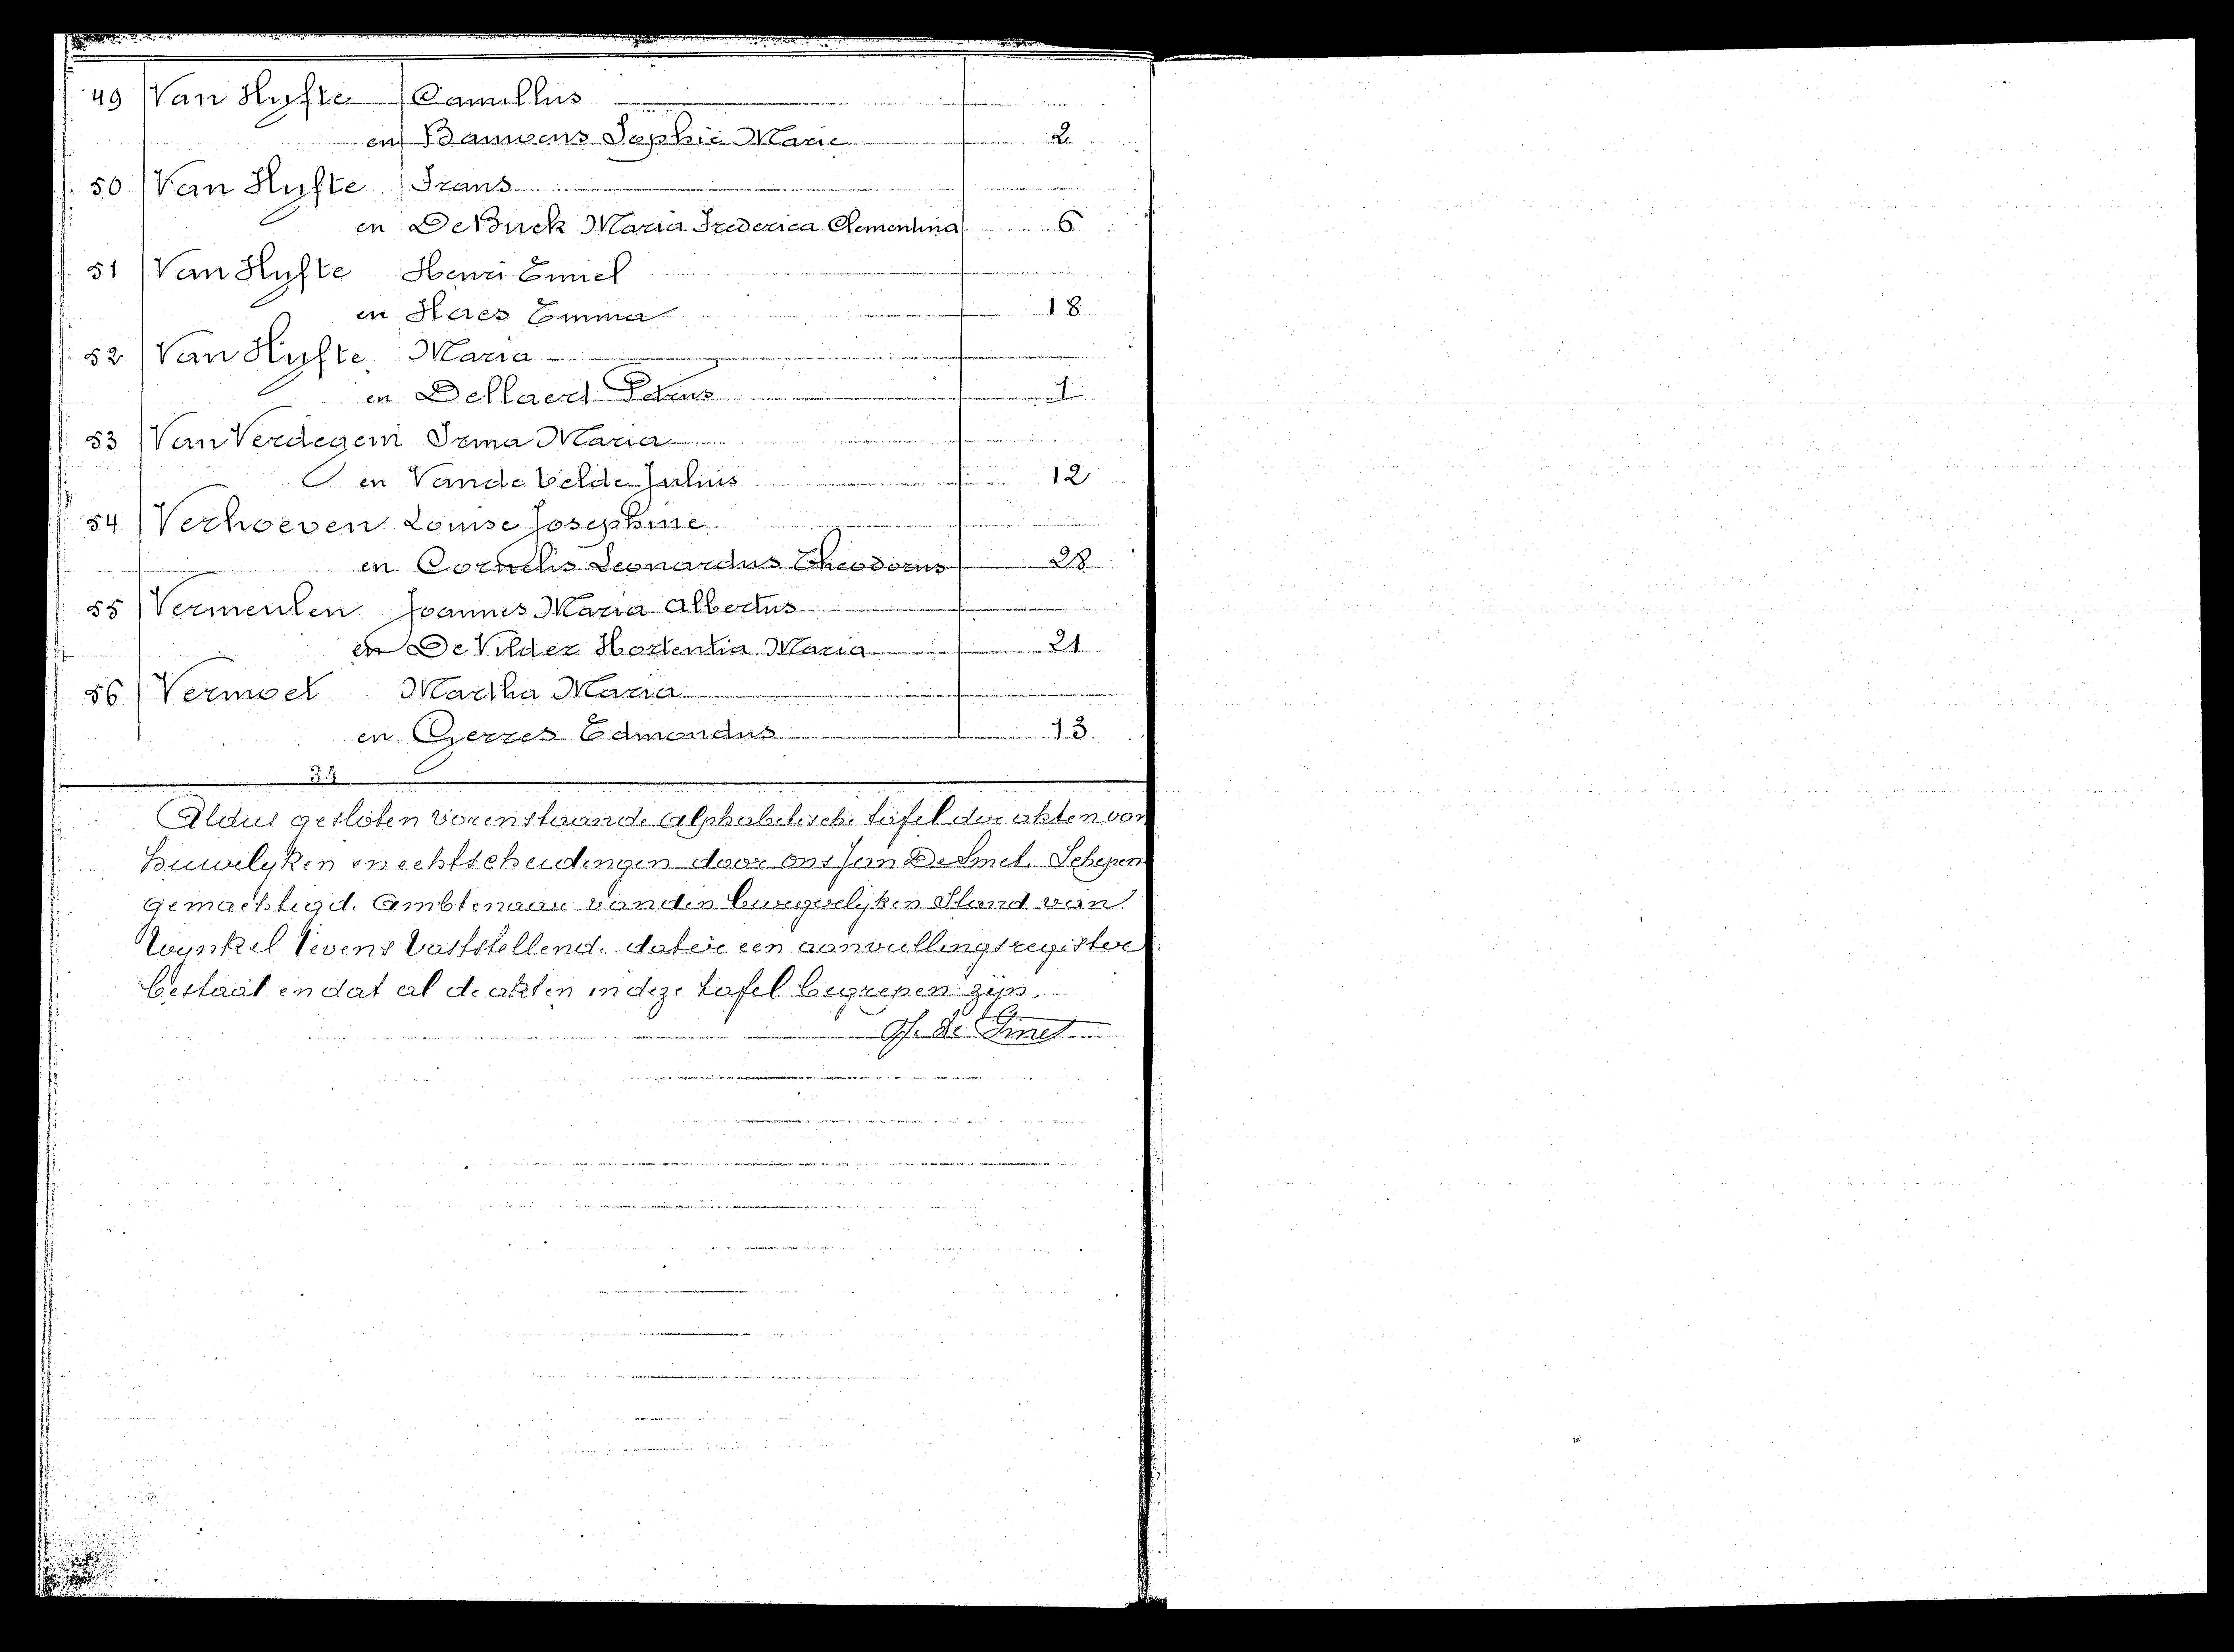 49 Van Hyfte Camillus
en Bauwens Sophie Marie 2
50 Van Hyfte Frans
en De Buck Maria Frederica Clementina 6
51 Van Hyfte Henri Emiel
en Haes Emma 18
52 Van Hyfte Maria
en Dellaert Petrus 1
53 Van Verdegem Irma Maria
en Vande Velde Julius 12
54 Verhoeven Louise Josephine
en Cornelis Leonardus Theodorus 28
55 Vermeulen Joannes Maria Albertus
en De Vilder Hortentia Maria 21
56 Vermoet Martha Maria
en Gerres Edmondus 13
34
Aldus gesloten vorenstaande alphabetische tafel der akten van
huwelyken en echtscheidingen door ons Jan De Smet, Schepen
gemachtigd. Ambtenaar van den burgerlyken Stand van
Wynkel tevens vaststellend. dat er een aanvullingsregister
bestaat en dat al de akten in deze tafel begrepen zijn.
J. De Smet